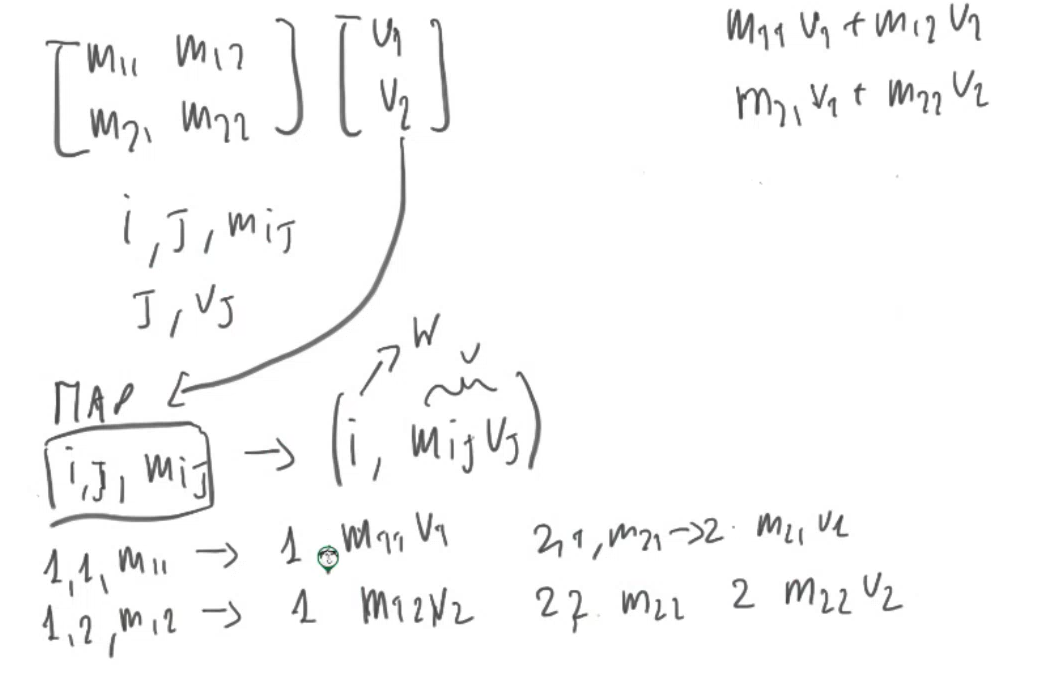 m11 m12 v1 m11 v1 + m12 v2
m21 m22 v2 m21 v1 + m22 v2
i, J, miJ
J, vJ
W
MAP v
i,J, miJ → (i, mijvJ)
1,1, m11 → 1 m11 v1 2,1, m21 → 2 m21 v1
1,2, m12 → 1 m12 v2 22 m22 2 m22 v2